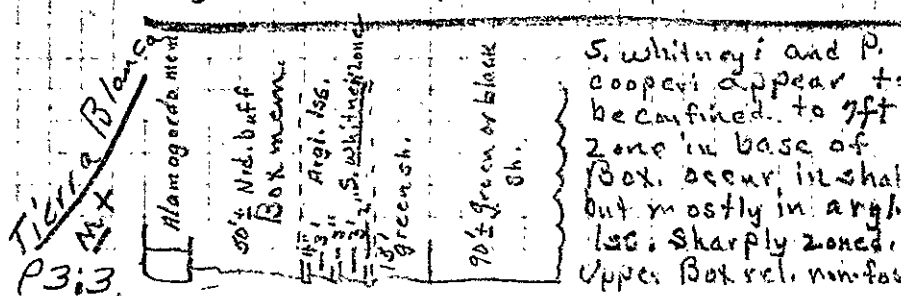 Tierra Blanca
P3:3.
Alamagordo mem
50'± Nod. buff
Box mem.
3' Argl. lss.
S. whitneyi zone
15'
green sh.
90'± green or black
sh.
S. whitneyi and P.
cooperi appear to
be confined to 7ft
zone in base of
Box. occur in shal
but mostly in argl.
lss. Sharply zoned.
Upper Box rel. non-fos